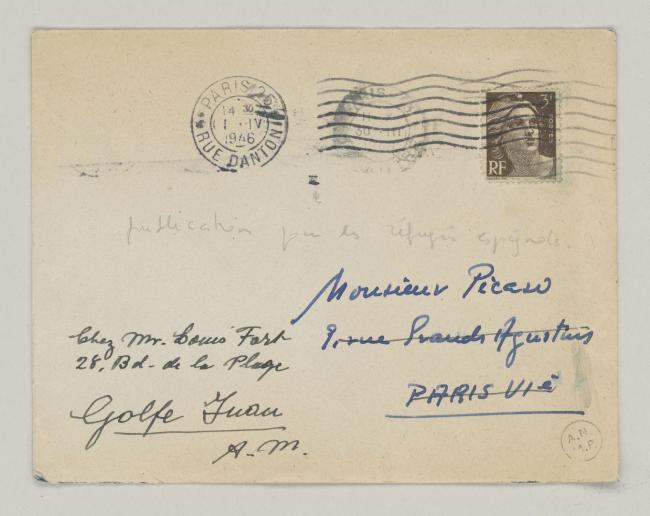 PARIS 25
14 30
1 - IV
1946
RUE DANTON
30 - III
3F
RF
publication par les réfugiés espagnols.
Monsieur Picaso
9, rue Grands Agustins
PARIS VIè
Chez Mr. Louis Fort
28, Bd. de la Plage
Golfe Juan
A.M.
A.N.
M.P.